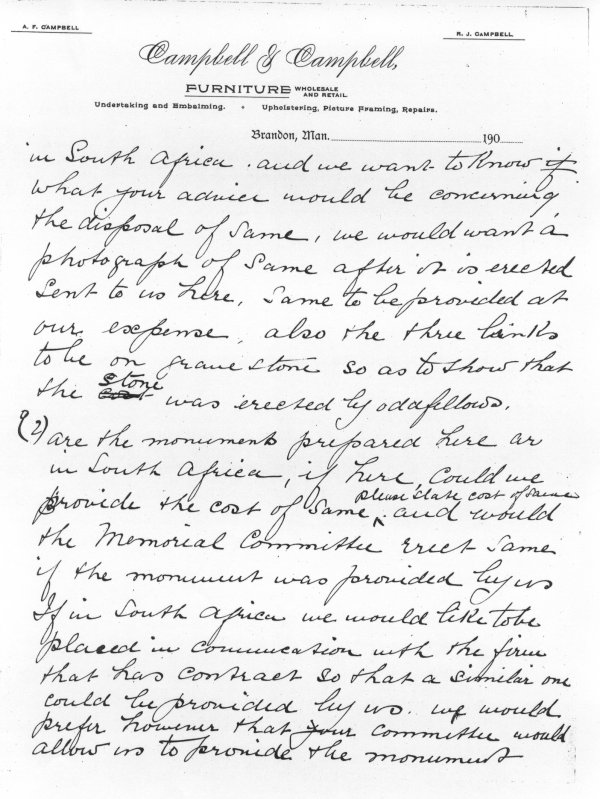 A. F. CAMPBELL
R. J. CAMPBELL.
Campbell & Campbell,
FURNITURE WHOLESALE AND RETAIL
Undertaking and Embalming. • Upholstering, Picture Framing, Repairs.
Brandon, Man. 190
in South Africa. and we want to know if
what your advice would be concerning
the disposal of same, we would want a
photograph of same after it is erected
sent to us here, same to be provided at
our expense, also the three links
to be on grave stone so as to show that
the cost stone was erected by oddfellows.
(2) are the monuments prepared here or
in South Africa, if here, could we
provide the cost of same please state cost of same and would
the Memorial Committee erect same
if the monument was provided by us
If in South Africa we would like to be
placed in communication with the firm
that has contract so that a similar one
could be provided by us. we would
prefer however that your committee would
allow us to provide the monument